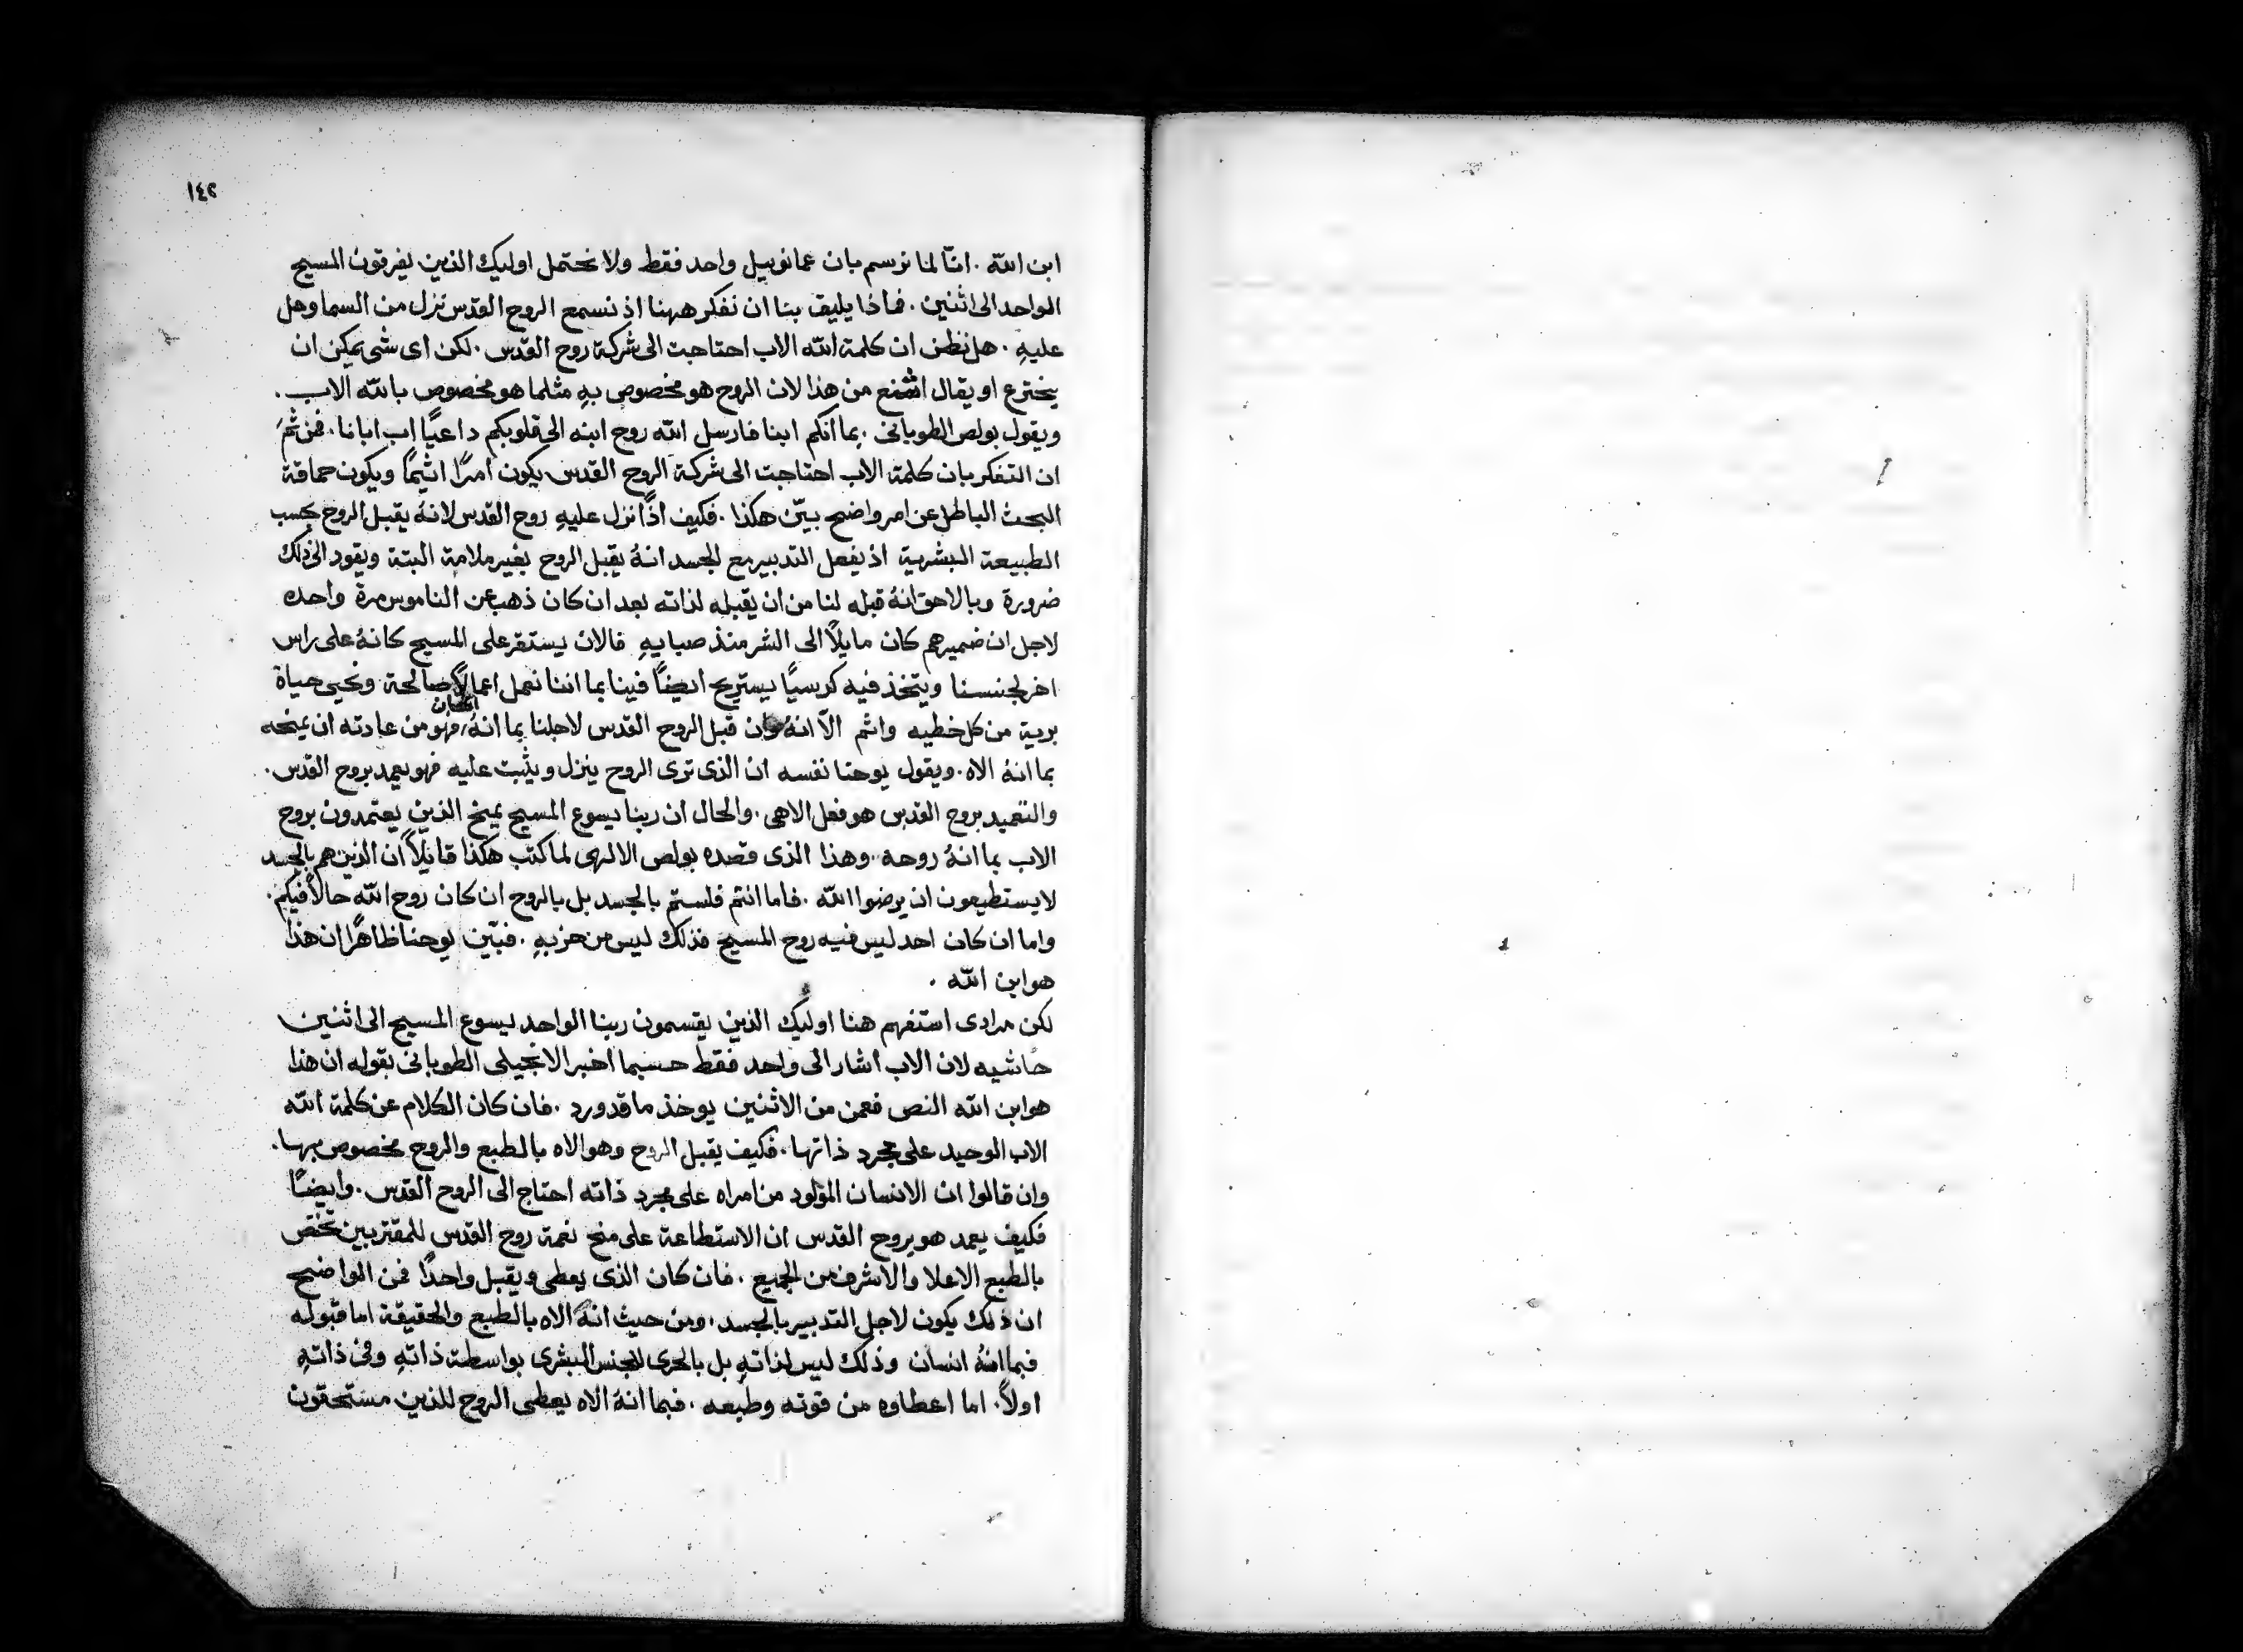 ١٤٢
ابن الله . اننا لمنا نرسم بان عمانوييل واحد فقط ولا نحتمل اوليك الذين يفرقون المسيح
الواحد الى اثنين . فماذا يليق بنا ان نفكر ههنا اذ نسمع الروح القدس نزل من السما وحل
عليهِ . هل نظن ان كلمة الله الاب احتاجت الى شركة روح القدس . لكن اى شى يمكن ان
يخترع او يقال اشنع من هذا لان الروح هو مخصوص بهِ مثلما هو مخصوص بالله الاب .
ويقول بولص الطوبانى . بما انكم ابنا فارسل الله روح ابنه الى قلوبكم داعيًا اب ابانا . فمن ثمَ
ان التفكر بان كلمة الاب احتاجت الى شركة الروح القدس يكون امرًا اثيمًا ويكون حماقة
البحث الباطل عن امر واضح بيّن هكذا . فكيف اذًا نزل عليهِ روح القدس لانهُ يقبل الروح بحسب
الطبيعة البشرية اذ يفعل التدبير مع الجسد انهُ يقبل الروح بغير ملامة البتة ويقود الى ذلك
ضرورة وبالاحق انهُ قبله لنا من ان يقبله لذاته بعد ان كان ذهب عن الناموس مرة واحده
لاجل ان ضميرهم كان مايلًا الى الشر منذ صبايهِ فالان يستقر على المسيح كانهُ على راس
اخر لجنسنا ويتخذ فيه كرسيًا يستريح ايضًا فينا بما اننا نعمل اعمالًا صالحة ونحيى حياة
انسان
برية من كل خطيه واثم الّا انهُ وان قبل الروح القدس لاجلنا بما انهُ فهو من عادته ان يمنحه
بما انهُ الاه . ويقول يوحنا نفسه ان الذى ترى الروح ينزل ويثبت عليه فهو يعمد بروح القدس .
والتعميد بروح القدس هو فعل الاهى . والحال ان ربنا يسوع المسيح يمنح الذين يعتمدون بروح
الاب بما انهُ روحه . وهذا الذى قصده بولص الالهى لما كتب هكذا قايلًا ان الذين هم بالجسد
لا يستطيعون ان يرضوا الله . فاما انتم فلستم بالجسد بل بالروح ان كان روح الله حالًا فيكم .
واما ان كان احد ليس فيه روح المسيح فذلك ليس من حزبهِ . فبيّن يوحنا ظاهرًا ان هذا
هو ابن الله .
لكن مرادى استفهم هنا اوليك الذين يقسمون ربنا الواحد يسوع المسيح الى اثنين
حاشيه لان الاب اشار الى واحد فقط حسبما اخبر الانجيلى الطوبانى بقوله ان هذا
هو ابن الله النص فعمن من الاثنين يوخذ ما قد ورد . فان كان الكلام عن كلمة الله
الاب الوحيد على مجرد ذاتها . فكيف يقبل الروح وهو الاه بالطبع والروح مخصوص بها .
وان قالوا ان الانسان المولود من امراه على مجرد ذاته احتاج الى الروح القدس . وايضًا
فكيف يعمد هو بروح القدس ان الاستطاعة على منح نعمة روح القدس للمقتربين تختص
بالطبع الاعلا والاشرف من الجميع . فان كان الذى يعطى ويقبل واحدًا فمن الواضح
ان ذلك يكون لاجل التدبير بالجسد . ومن حيث انهُ الاه بالطبع والحقيقة اما قبوله
فبما انهُ انسان وذلك ليس لذاتهِ بل بالحرى للجنس البشرى بواسطة ذاتهِ وفى ذاتهِ
اولًا . اما اعطاوه من قوته وطبعه . فبما انهُ الاه يعطى الروح للذين مستحقون